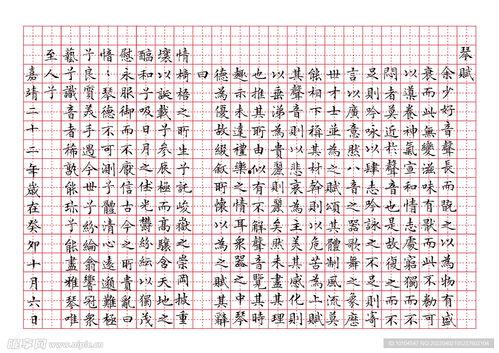 琴賦
余少好音聲長而翫之以為物有盛
衰而此無變滋味有猒而此不勌可
以導養神氣宣和情志處窮獨而不
悶者莫近於聲音也是故復之而不
足則吟咏以肆志吟咏之不足則寄
言以廣意然八音之器歌舞之象歷
世才士並為之賦頌其體制風流莫
其材幹則以危苦為上賦
其聲音則以悲哀為主美其感化則
以垂涕為貴麗則麗矣然未盡其理
也推其所由似元不解音聲覽其旨
趣亦未達禮樂之情也眾器之中琴
德最優故綴叙所懷以為之賦其辭
曰
椅梧之所生兮託峻嶽之崇岡披重
壤以誕載兮參辰極而高驤含天地之
和兮吸日月之休光鬱紛紜以獨茂
慰永服御而不猒信古今之所貴亂曰
愔愔琴德不可測兮體清心遠邈難極
兮良質美手遇今世兮紛綸翕響冠眾
藝兮識音者希孰能珍兮能盡雅琴唯
至人兮
嘉靖二十二年歲在癸卯十月六日